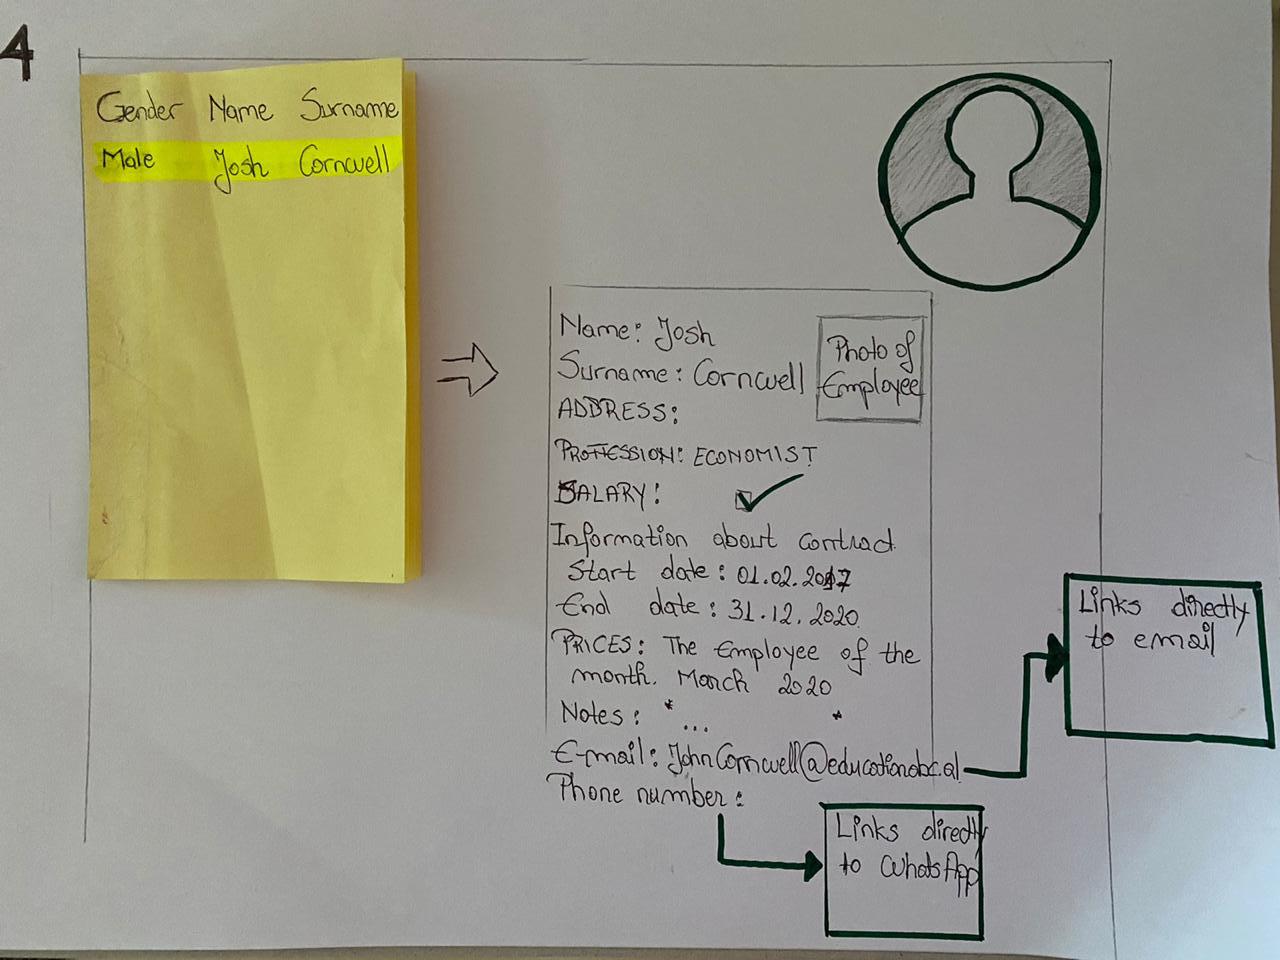 4
Gender Name Surname
Male Josh Cornwell
Name: Josh
Surname: Cornwell
Photo of
Employee
ADDRESS:
PROFFESSION: ECONOMIST
SALARY:
Information about contract
Start date: 01.02.2017
End date: 31.12.2020
PRICES: The Employee of the
month. March 2020
Notes: * ... *
E-mail: JohnCornwell@educationabc.al
Phone number:
Links directly
to email
Links directly
to WhatsApp